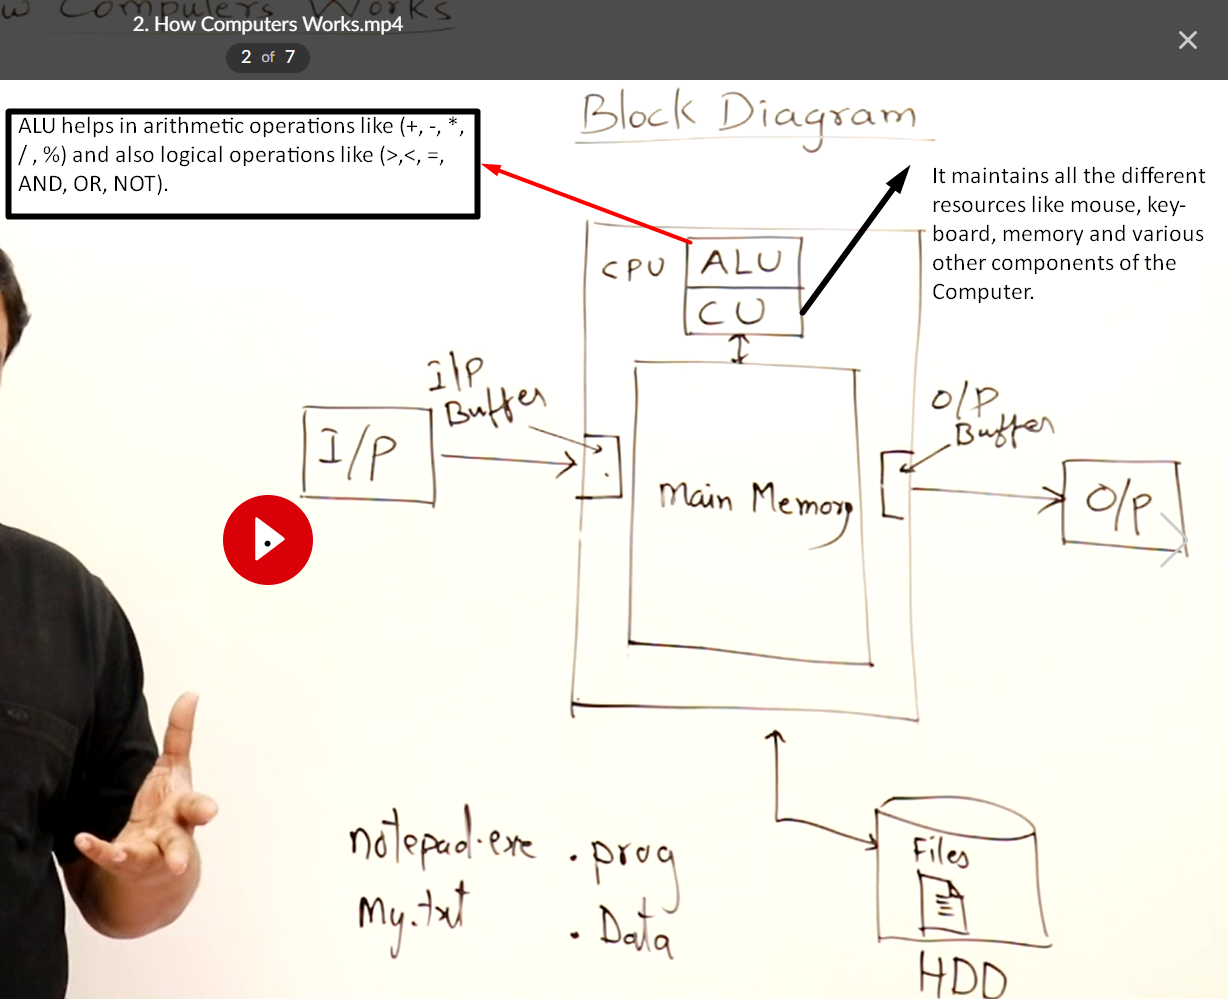 w Computers Works
2. How Computers Works.mp4
2 of 7
Block Diagram
ALU helps in arithmetic operations like (+, -, *,
/ , %) and also logical operations like (>,<, =,
AND, OR, NOT).
It maintains all the different
resources like mouse, key-
board, memory and various
other components of the
Computer.
CPU
ALU
CU
I/P
Buffer
I/P
Main Memory
O/P
Buffer
O/P
notepad.exe . prog
My.txt . Data
Files
HDD